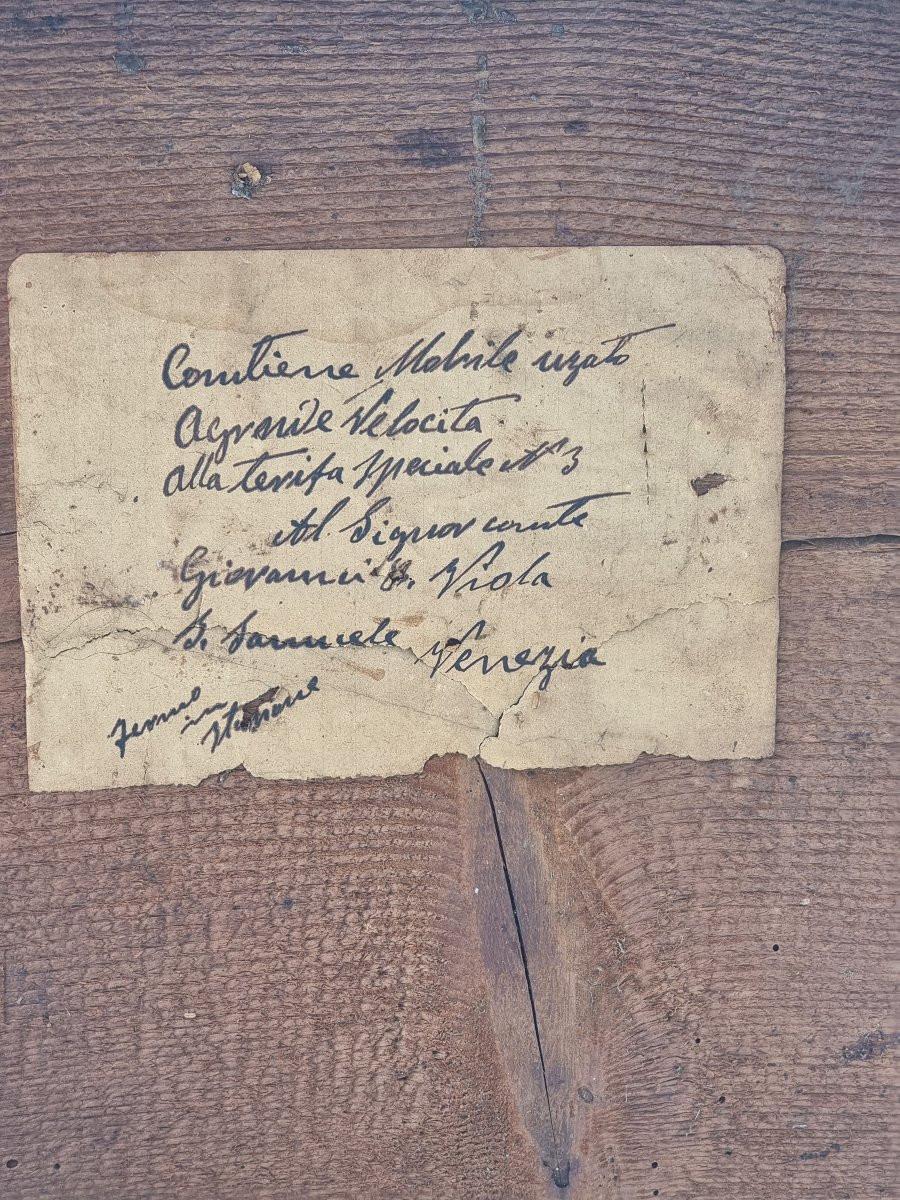 Contiene Mobile uzato
Agrande Velocita
alla terifa speciale N° 3
Al Signor conte
Giovanni Viola
S. Samuele Venezia
fermo
in
stazione